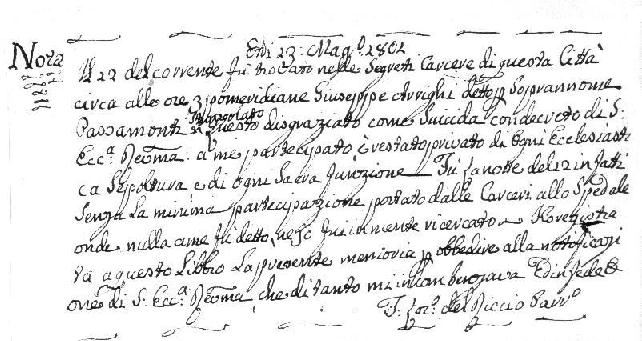 Nota
Edi 23: Magº. 1802
Il 22 del corrente fù trovato nelle Segreti Carcere di questa Città
circa alle ore 3 pomeridiane Giuseppe Arrighi detto p Soprannome
Passamonti questo disgraziato come Suicida con decreto di S.
Eccª. Revma. a me partecipato è restato privato di ogni Ecclesiasti
ca Sepoltura e di ogni Sacra funzione Fù la notte del 22 infati
Senza la minima partecipazione portato dalle Carceri allo Spedale
onde nulla a me fù detto, ne so fui in niente ricercato e Ho registra
ta a questo Libro la presente memoria p obbedire alla notificazi
one di S. Eccª. Revma. che di tanto m'incombenzava Ed in fede &
F. del Riccio